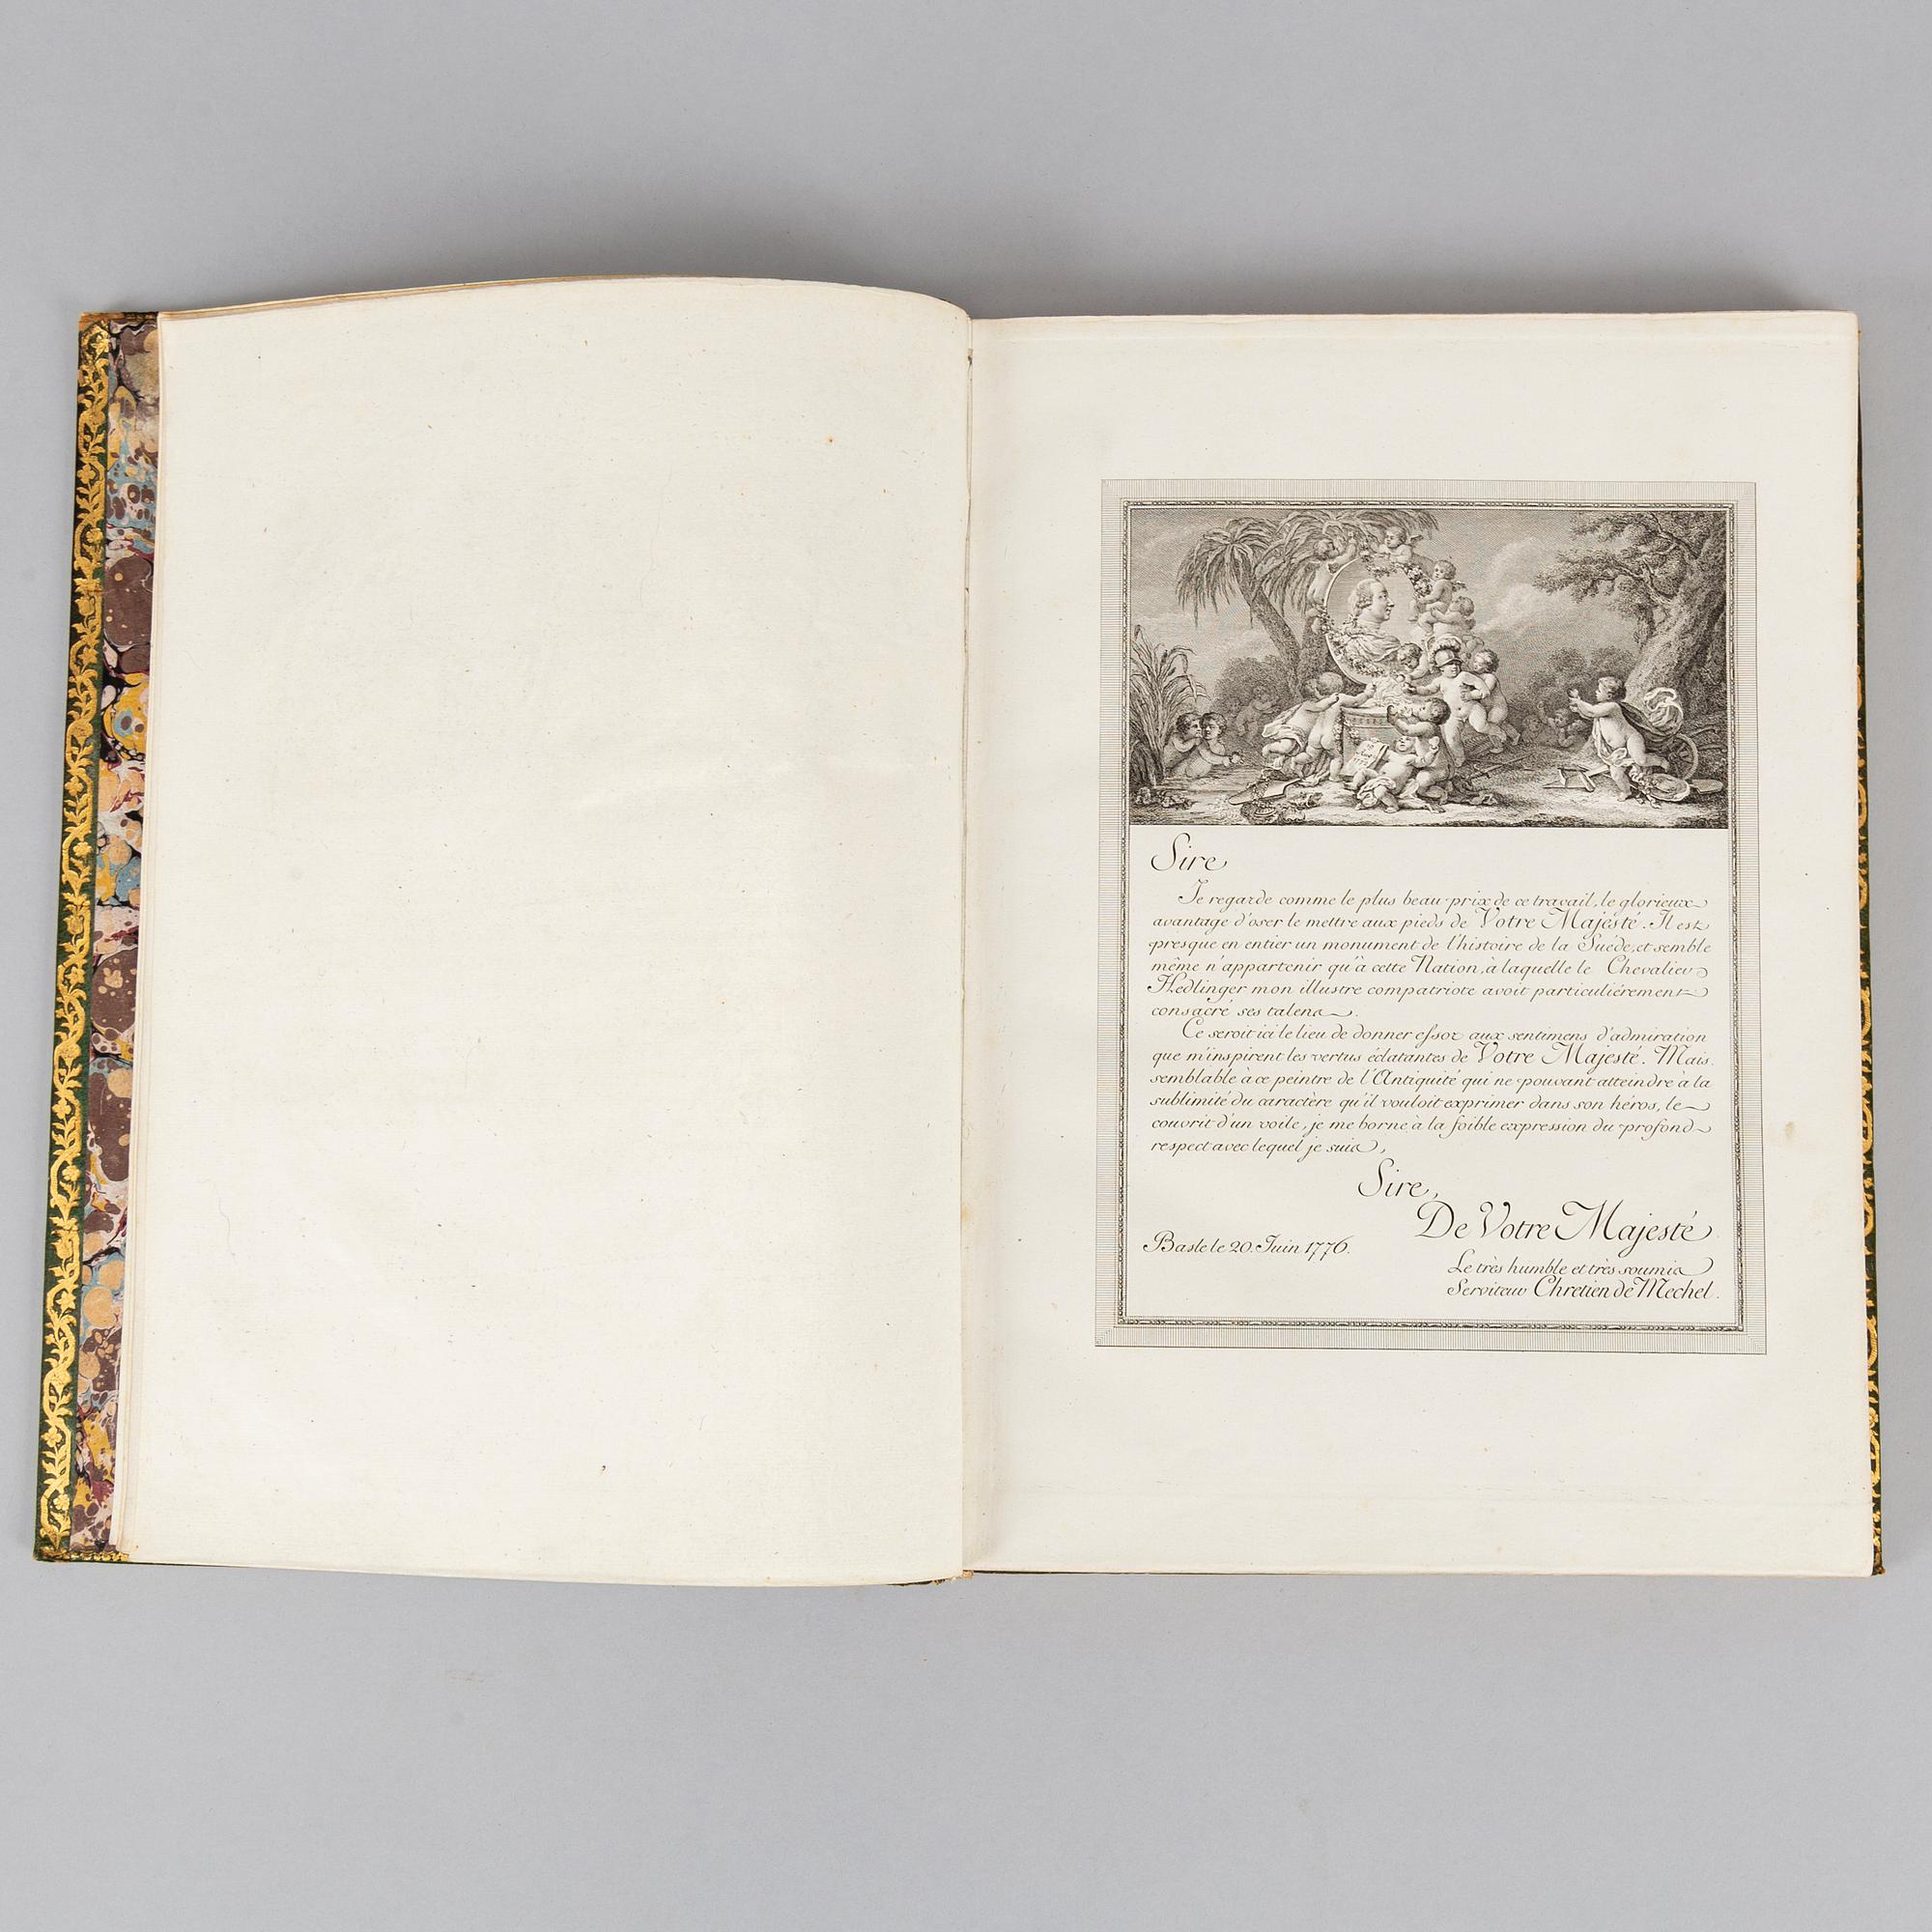 Sire
Je regarde comme le plus beau prix de ce travail, le glorieux
avantage d'oser le mettre aux pieds de Votre Majesté. Il est
presque en entier un monument de l'histoire de la Suéde, et semble
même n'appartenir qu'à cette Nation, à laquelle le Chevalier
Hedlinger mon illustre compatriote avoit particuliérement
consacré ses talens.
Ce seroit ici le lieu de donner essor aux sentimens d'admiration
que m'inspirent les vertus éclatantes de Votre Majesté. Mais
semblable à ce peintre de l'Antiquité qui ne pouvant atteindre à la
sublimité du caractère qu'il vouloit exprimer dans son héros, le
couvrit d'un voile, je me borne à la foible expression du profond
respect avec lequel je suis,
Sire,
De Votre Majesté
Basle le 20. Juin 1776.
Le très humble et très soumis
Serviteur Chretien de Mechel.